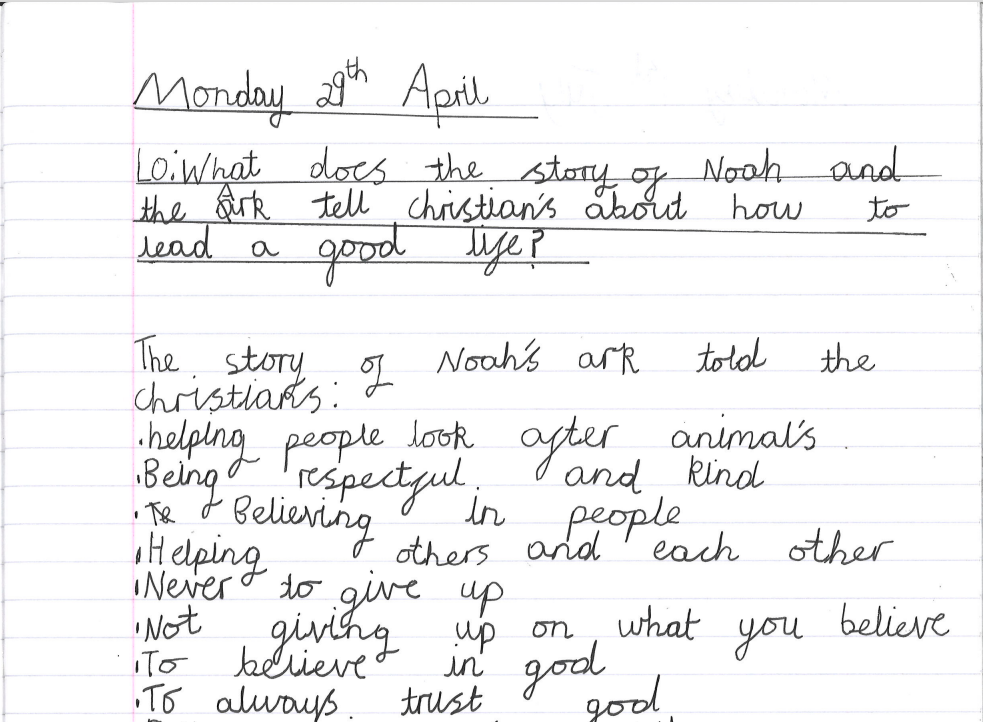 Monday 29th April
LO: What does the story of Noah and
the Ark tell christian's about how to
lead a good life?
The story of Noah's ark told the
christian's:
.helping people look after animal's.
.Being respectful. and kind
. Believing in people
.Helping others and each other
.Never to give up
.Not giving up on what you believe
.To believe in god
.To always trust god